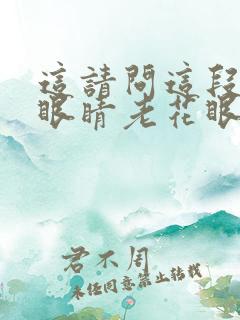 這請問這段
眼睛老花眼
君不周
未任同意禁止转载